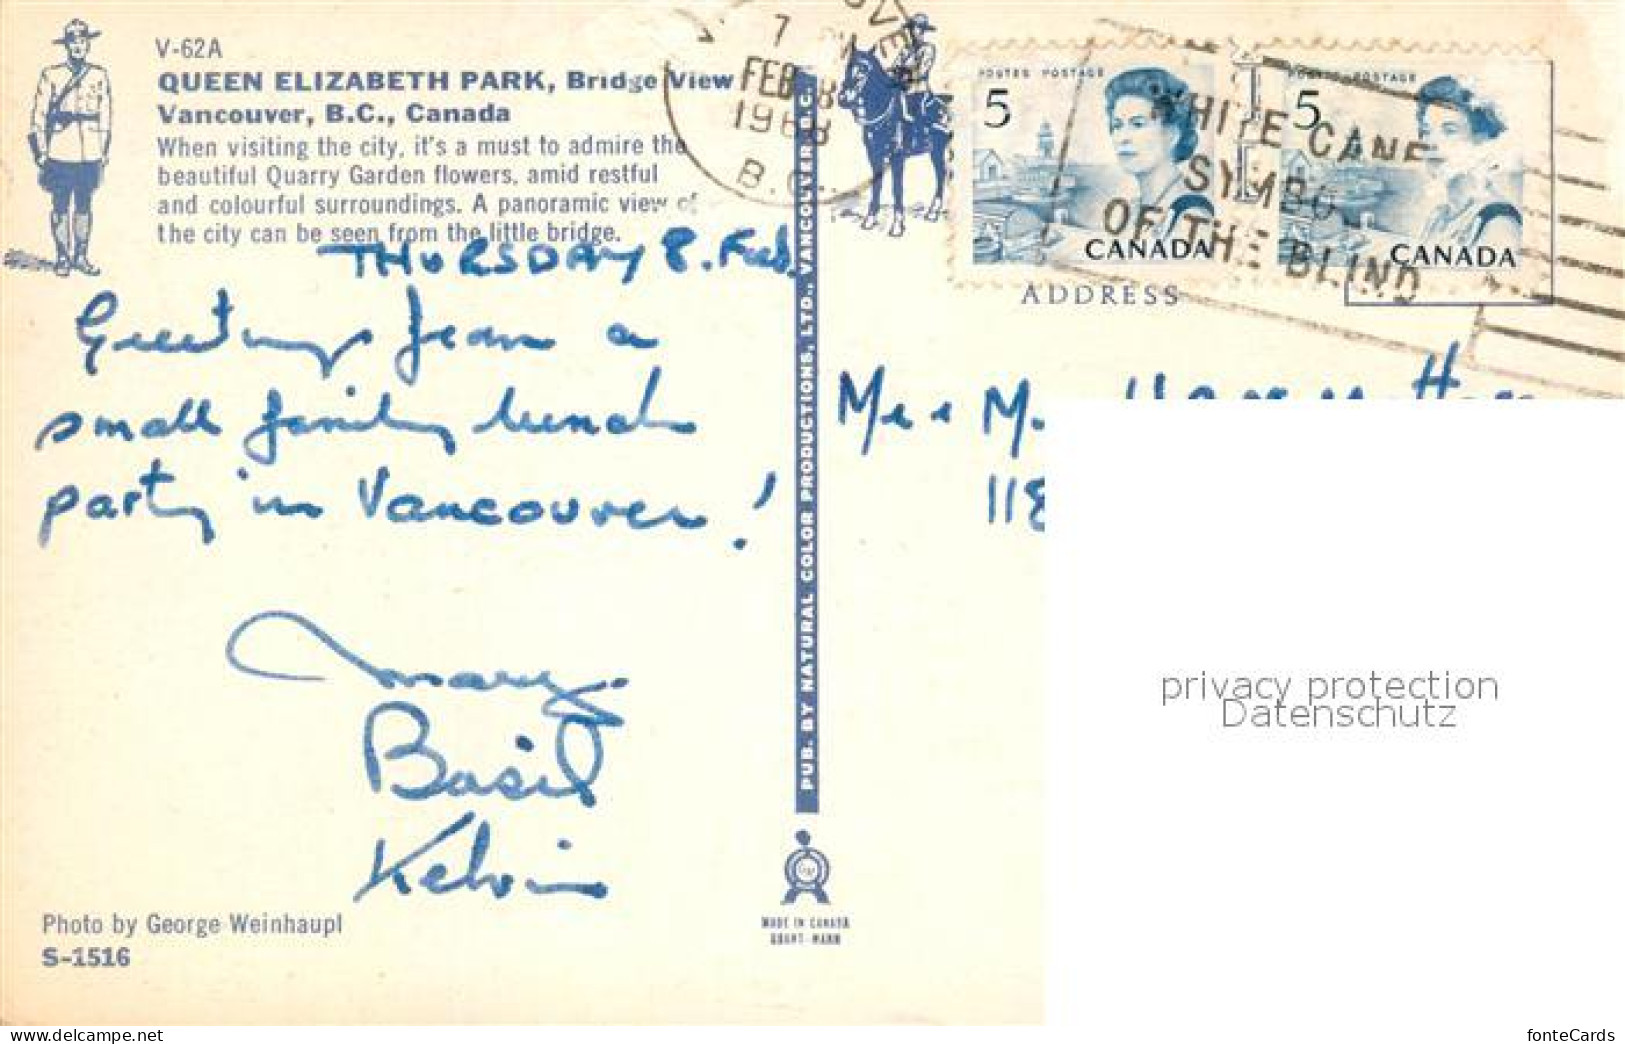 V-62A
QUEEN ELIZABETH PARK, Bridge View
Vancouver, B.C., Canada
When visiting the city, it's a must to admire the
beautiful Quarry Garden flowers, amid restful
and colourful surroundings. A panoramic view of
the city can be seen from the little bridge.
THURSDAY 8. Feb.
Greetings from a
small family lunch
party in Vancouver!
Mary
Basil
Kelvin
Photo by George Weinhaupl
S-1516
PUB. BY NATURAL COLOR PRODUCTIONS, LTD., VANCOUVER, B.C.
MADE IN CANADA
GRANT-MANN
7
FEB 8
1968
B.C.
POSTES POSTAGE
5
CANADA
POSTES POSTAGE
5
CANADA
WHITE CANE
SYMBOL
OF THE BLIND
ADDRESS
118
privacy protection
Datenschutz
www.delcampe.net
fonteCards